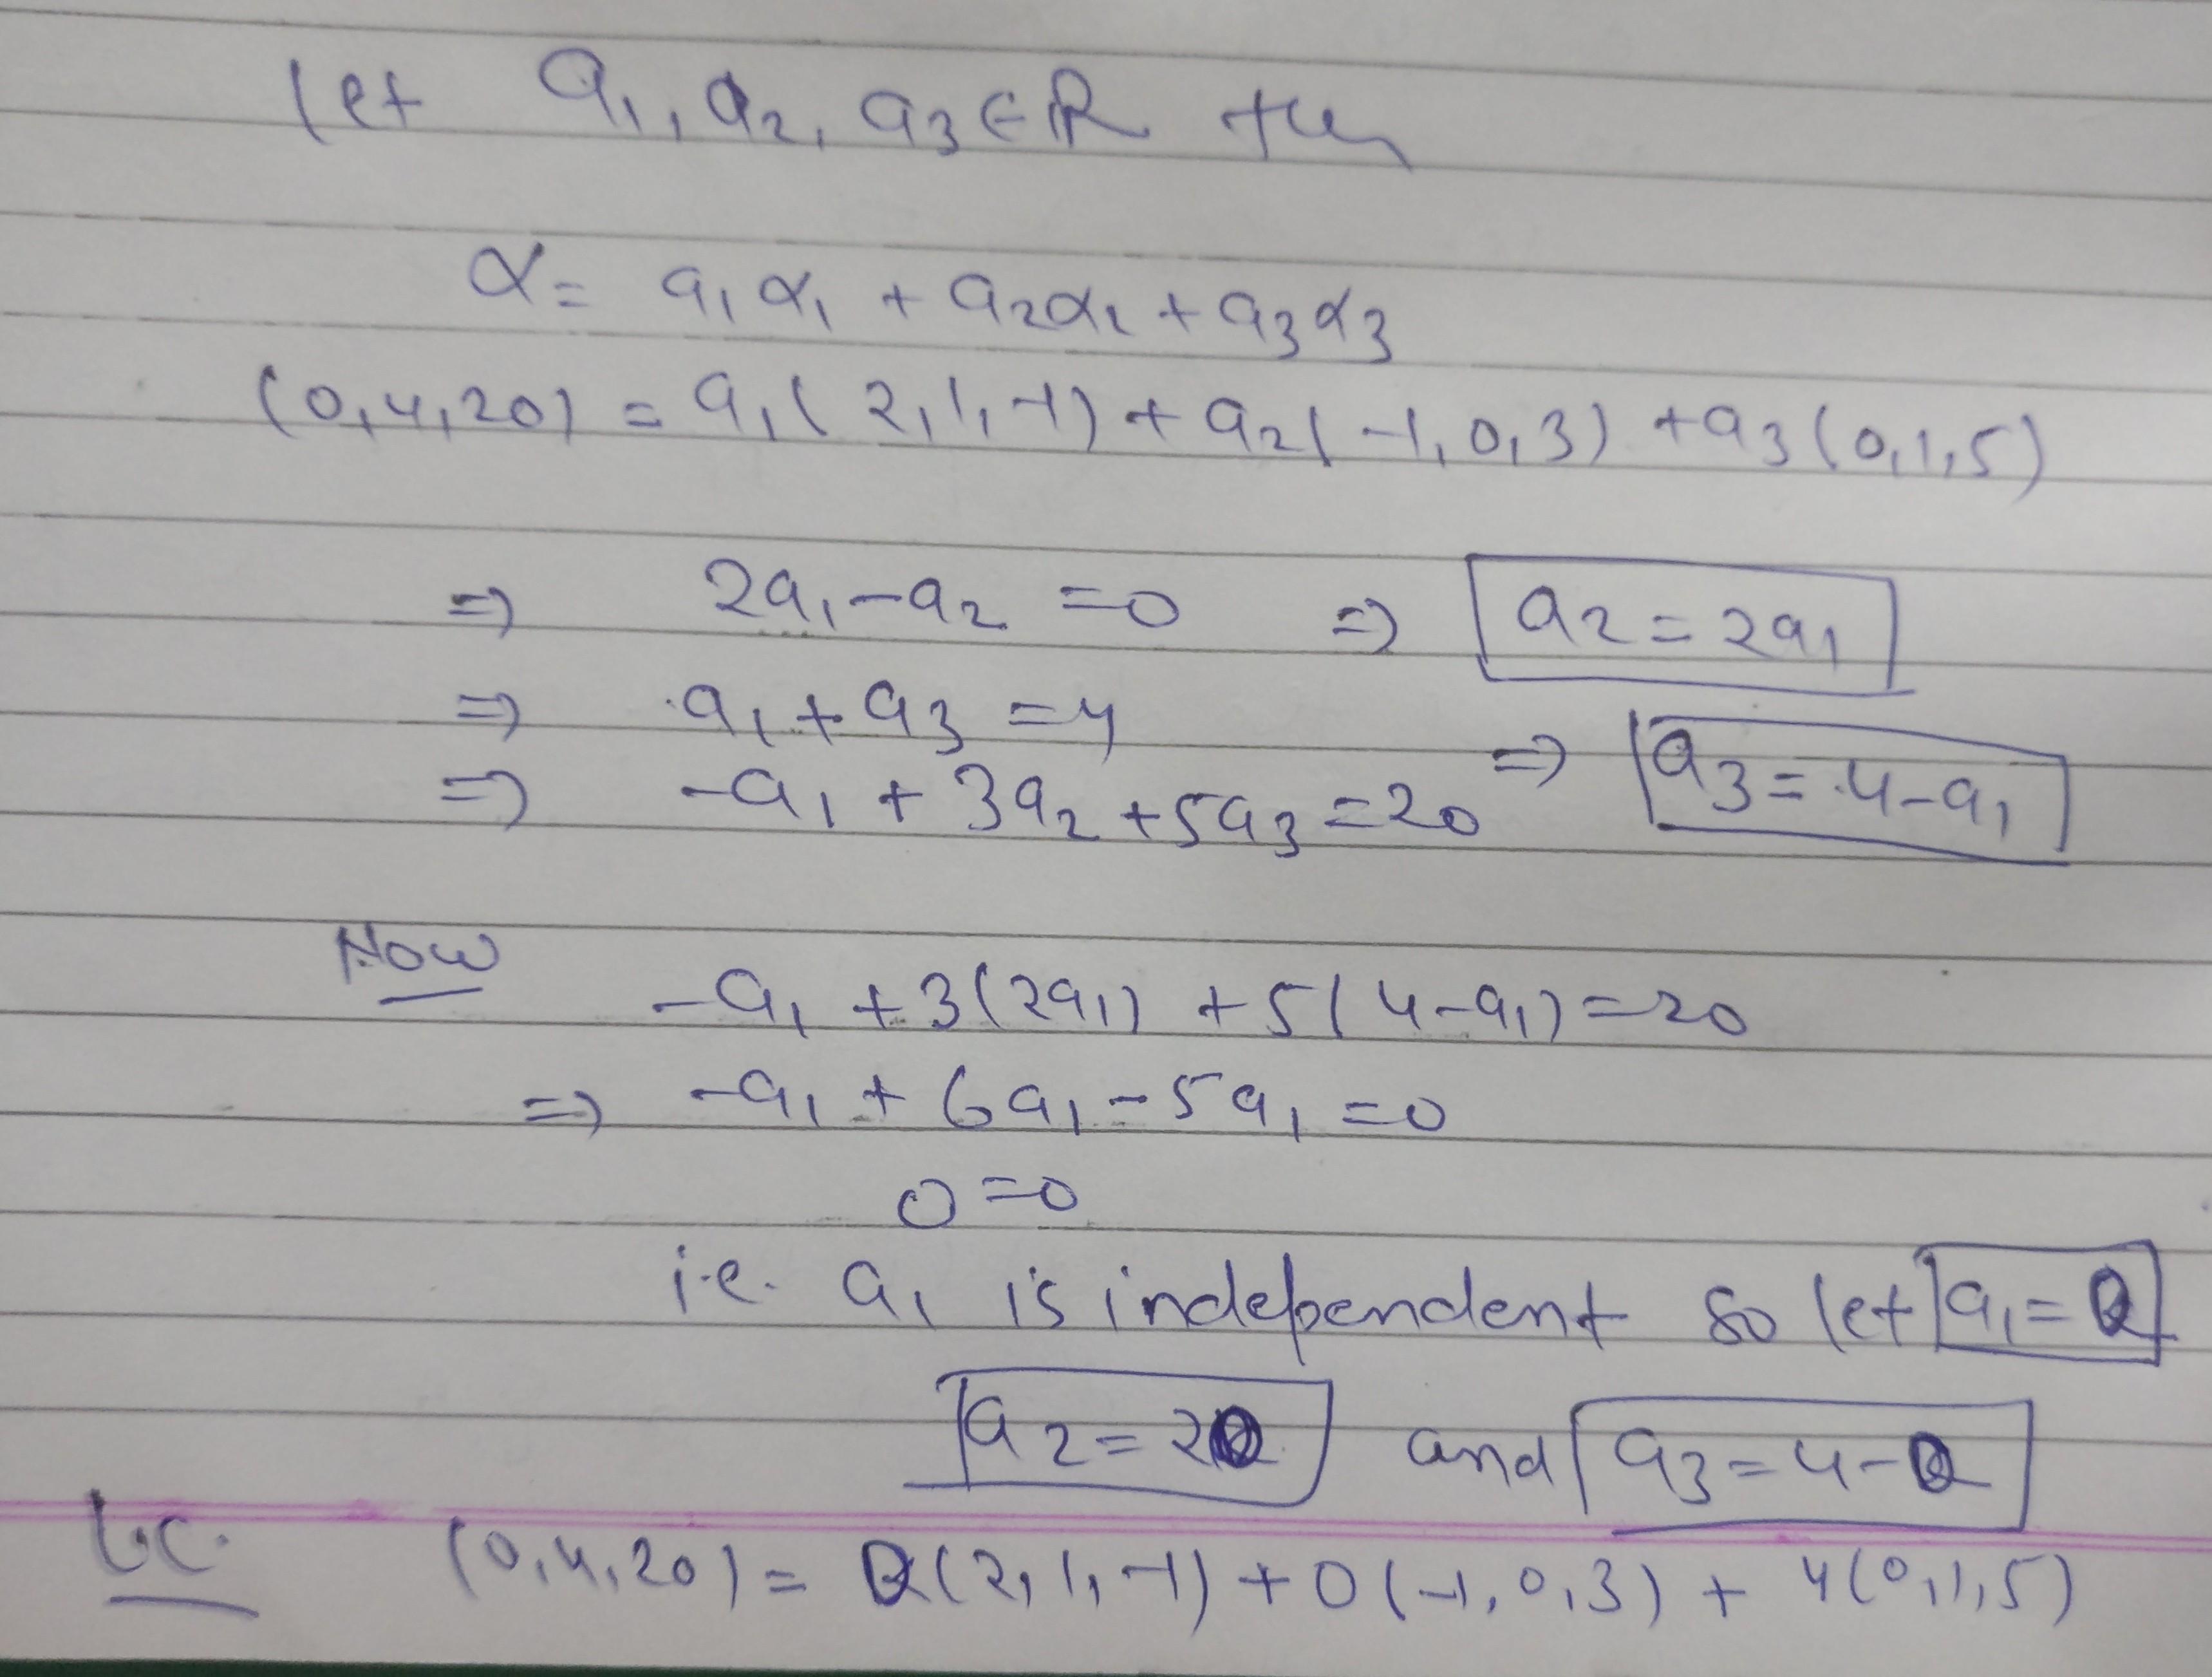 let a₁, a₂, a₃ ∈ ℝ then
α = a₁α₁ + a₂α₂ + a₃α₃
(0,4,20) = a₁(2,1,-1) + a₂(-1,0,3) + a₃(0,1,5)
⇒ 2a₁ - a₂ = 0 ⇒ a₂ = 2a₁
⇒ a₁ + a₃ = 4 ⇒ a₃ = 4 - a₁
⇒ -a₁ + 3a₂ + 5a₃ = 20
Now -a₁ + 3(2a₁) + 5(4-a₁) = 20
⇒ -a₁ + 6a₁ - 5a₁ = 0
0 = 0
i.e. a₁ is independent so let a₁ =
a₂ = 2 and a₃ = 4 -
L.C. (0,4,20) = (2,1,-1) + 0(-1,0,3) + 4(0,1,5)